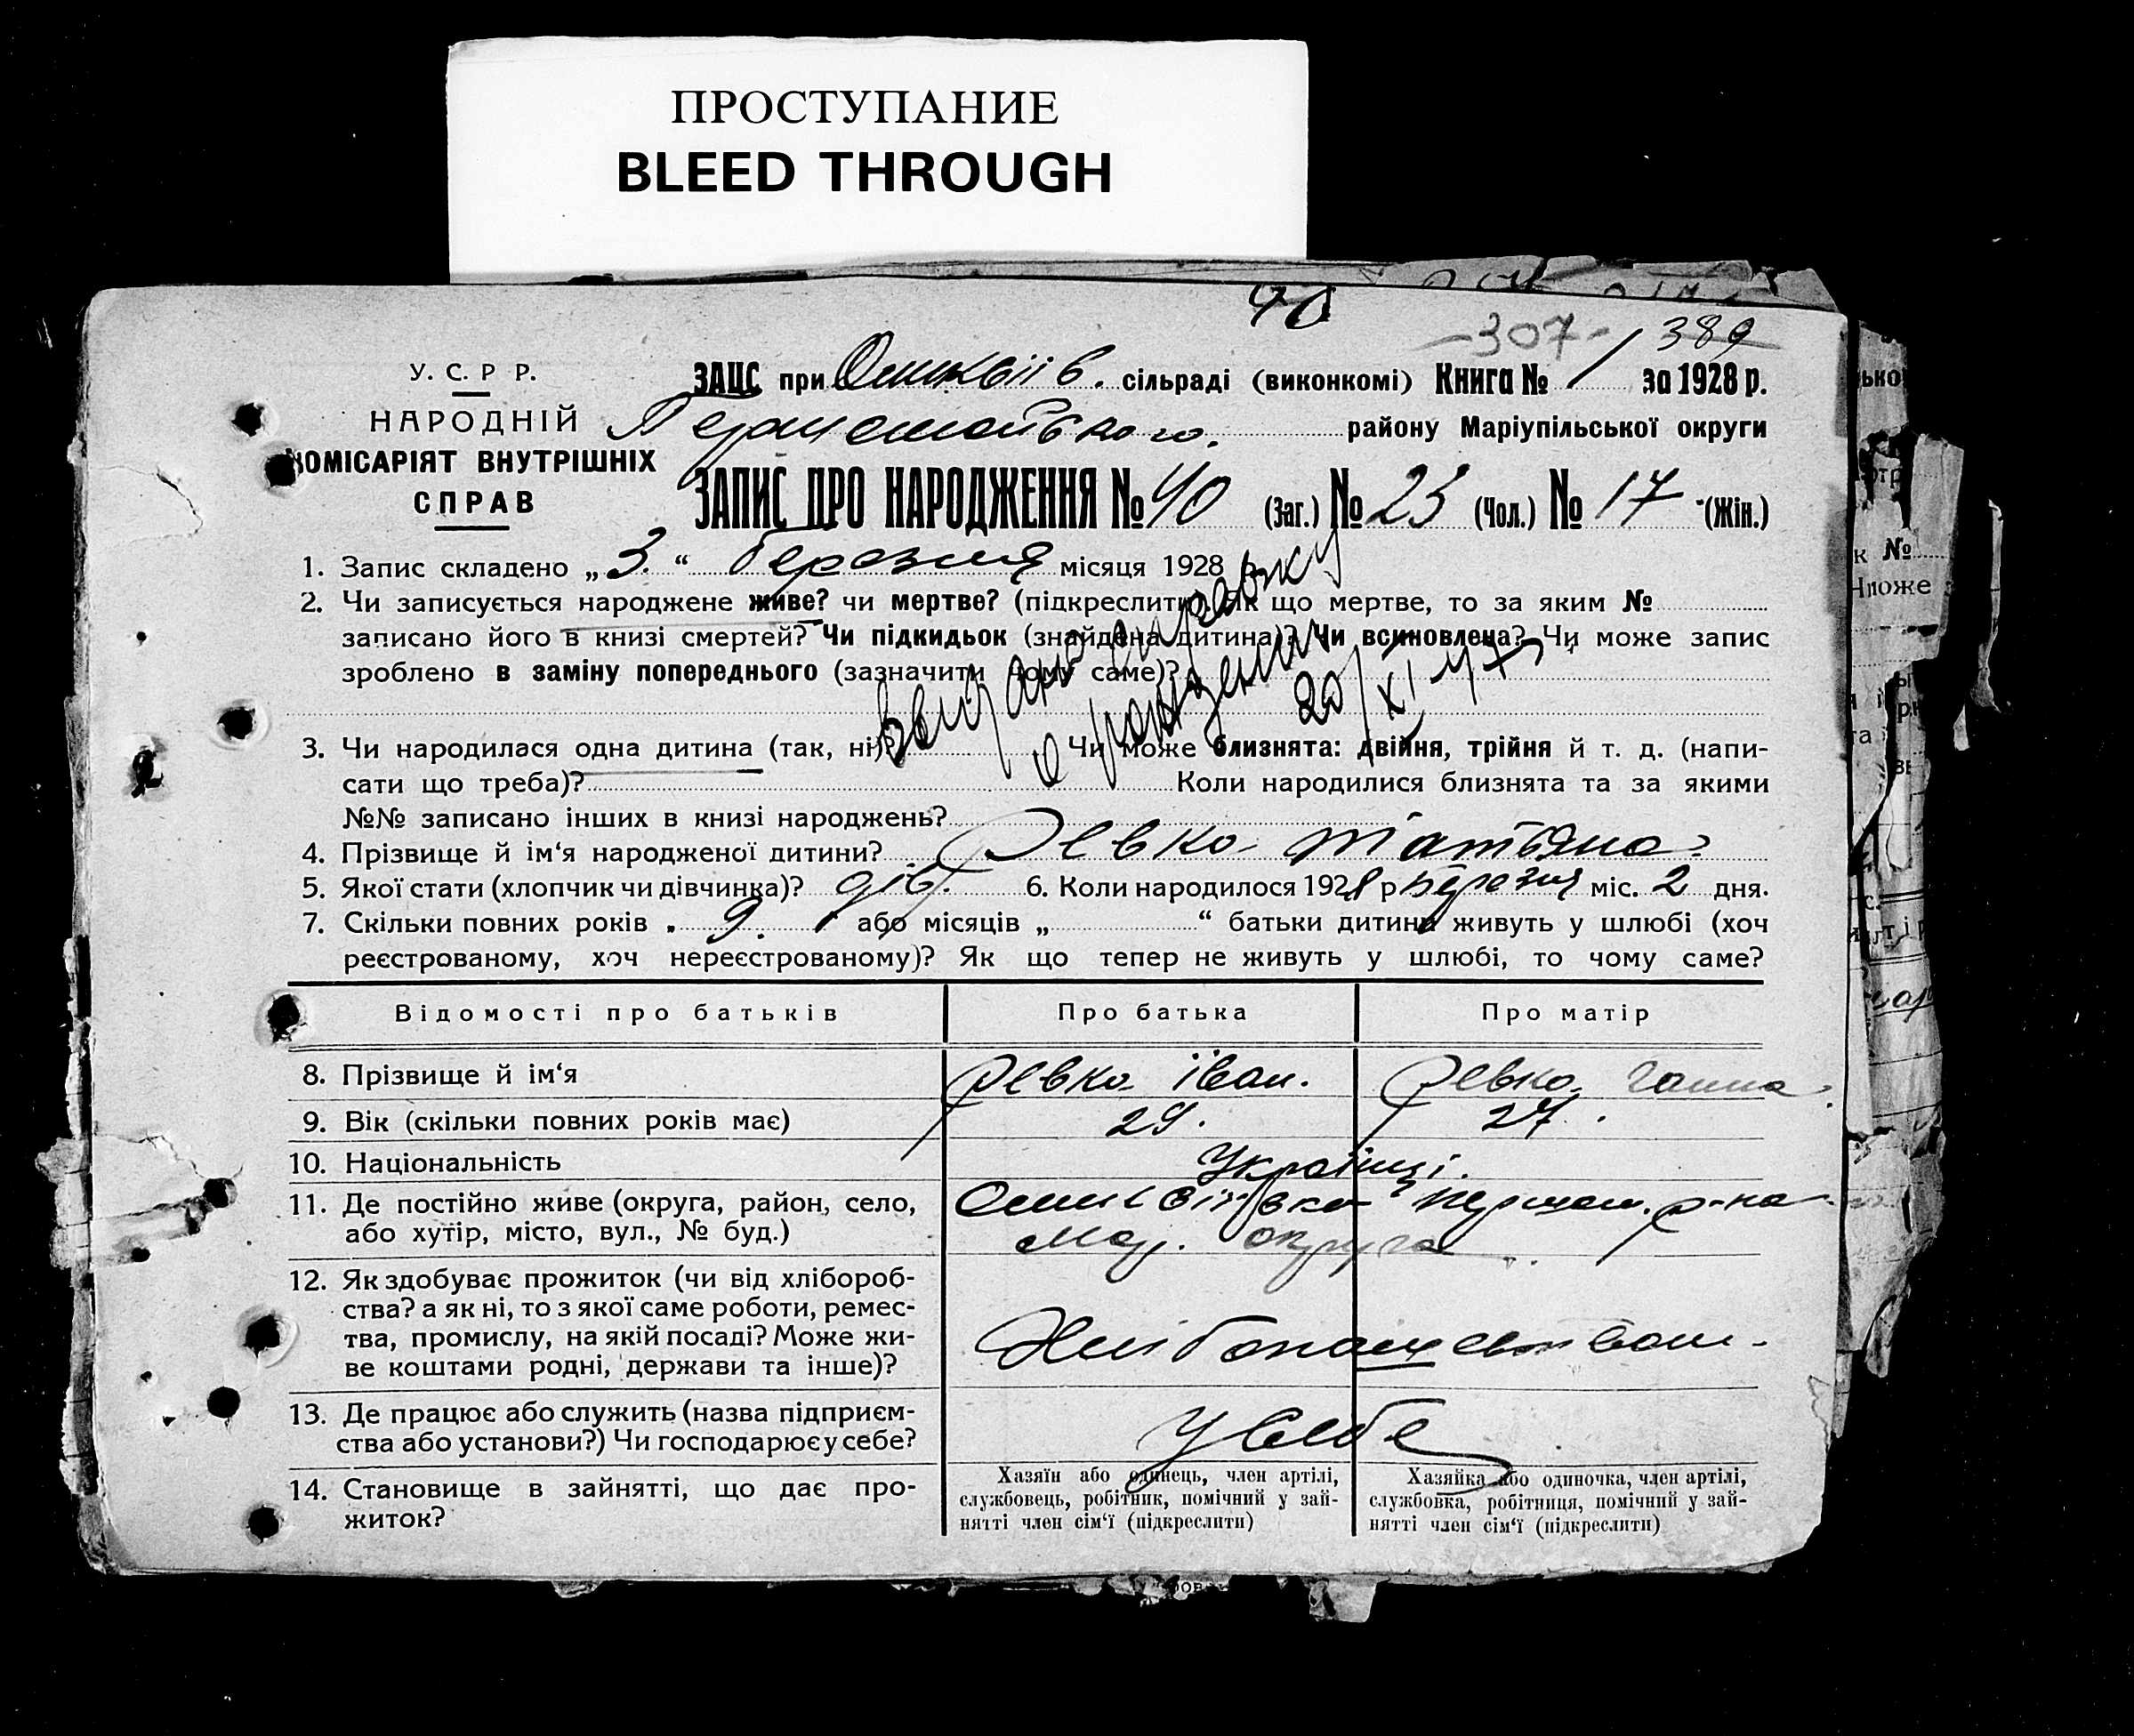 ПРОСТУПАНИЕ
BLEED THROUGH
40
-307-
389
У. С. Р Р.
НАРОДНІЙ
КОМІСАРІЯТ ВНУТРІШНІХ
СПРАВ
ЗАЦС при сільраді (виконкомі) Книга № 1 за 1928 р.
Першотравського. району Маріупільської округи
ЗАПИС ПРО НАРОДЖЕННЯ № 40 (Заг.) № 23 (Чол.) № 17 (Жін.)
1. Запис складено „ 3. “ березня місяця 1928 р.
2. Чи записується народжене живе? чи мертве? (підкреслити) Як що мертве, то за яким №
записано його в книзі смертей? Чи підкидьок (знайдена дитина)? Чи всиновлена? Чи може запис
зроблено в заміну попереднього (зазначити чому саме)?
справку
о рождении
20/XI 47
3. Чи народилася одна дитина (так, ні)? Чи може близнята: двійня, трійня й т. д. (напи-
сати що треба)? Коли народилися близнята та за якими
№№ записано інших в книзі народжень?
4. Прізвище й ім‘я народженої дитини? Ревко Татьяна
5. Якої стати (хлопчик чи дівчинка)? дів. 6. Коли народилося 1928 р березня міс. 2 дня.
7. Скільки повних років „ 9. “ або місяців „ “ батьки дитини живуть у шлюбі (хоч
реєстрованому, хоч нереєстрованому)? Як що тепер не живуть у шлюбі, то чому саме?
Відомості про батьків Про батька Про матір
8. Прізвище й ім‘я Ревко Іван. Ревко Ганна.
9. Вік (скільки повних років має) 29. 27.
10. Національність Українці.
11. Де постійно живе (округа, район, село, р-на
або хутір, місто, вул., № буд.) Мар. округа
12. Як здобуває прожиток (чи від хлібороб-
ства? а як ні, то з якої саме роботи, ремес-
тва, промислу, на якій посаді? Може жи-
ве коштами родні, держави та інше)?
Хлібопашеством
13. Де працює або служить (назва підприєм-
ства або установи?) Чи господарює у себе?
У себе
14. Становище в зайнятті, що дає про-
житок?
Хазяїн або одинець, член артілі,
службовець, робітник, помічний у зай-
нятті член сім‘ї (підкреслити)
Хазяйка або одиночка, член артілі,
службовка, робітниця, помічний у зай-
нятті член сім‘ї (підкреслити)